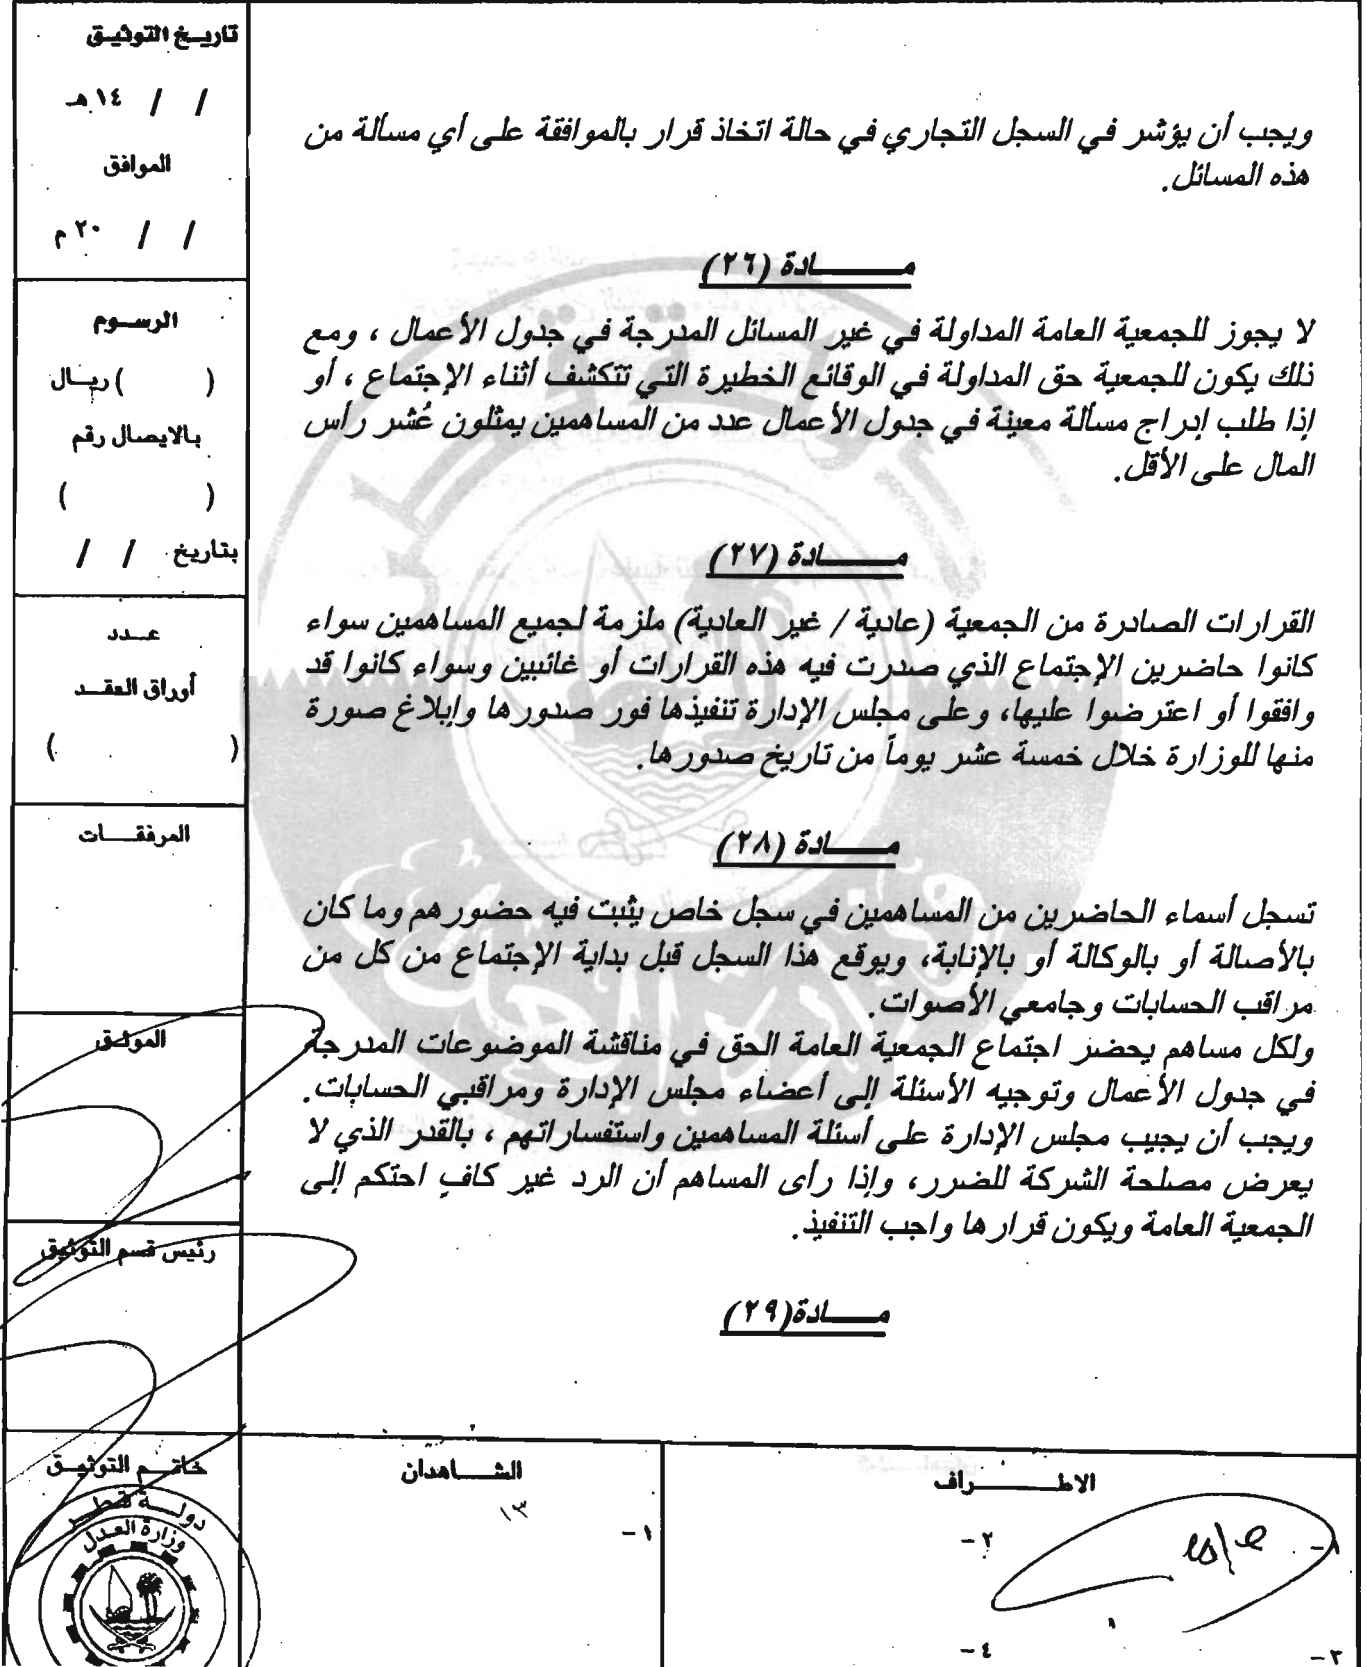 ويجب أن يؤشر في السجل التجاري في حالة اتخاذ قرار بالموافقة على أي مسألة من
هذه المسائل.
مـــــــادة (٢٦)
لا يجوز للجمعية العامة المداولة في غير المسائل المدرجة في جدول الأعمال ، ومع
ذلك يكون للجمعية حق المداولة في الوقائع الخطيرة التي تتكشف أثناء الإجتماع ، أو
إذا طلب إدراج مسألة معينة في جدول الأعمال عدد من المساهمين يمثلون عُشر رأس
المال على الأقل.
مـــــــادة (٢٧)
القرارات الصادرة من الجمعية (عادية / غير العادية) ملزمة لجميع المساهمين سواء
كانوا حاضرين الإجتماع الذي صدرت فيه هذه القرارات أو غائبين وسواء كانوا قد
وافقوا أو اعترضوا عليها، وعلى مجلس الإدارة تنفيذها فور صدورها وإبلاغ صورة
منها للوزارة خلال خمسة عشر يوماً من تاريخ صدورها.
مـــــــادة (٢٨)
تسجل أسماء الحاضرين من المساهمين في سجل خاص يثبت فيه حضورهم وما كان
بالأصالة أو بالوكالة أو بالإنابة، ويوقع هذا السجل قبل بداية الإجتماع من كل من
مراقب الحسابات وجامعي الأصوات.
ولكل مساهم يحضر اجتماع الجمعية العامة الحق في مناقشة الموضوعات المدرجة
في جدول الأعمال وتوجيه الأسئلة إلى أعضاء مجلس الإدارة ومراقبي الحسابات.
ويجب أن يجيب مجلس الإدارة على أسئلة المساهمين واستفساراتهم ، بالقدر الذي لا
يعرض مصلحة الشركة للضرر، وإذا رأى المساهم أن الرد غير كافٍ احتكم إلى
الجمعية العامة ويكون قرارها واجب التنفيذ.
مـــــادة(٢٩)
تاريـخ التوثيـق
/ / ١٤هـ
الموافق
/ / ٢٠م
الرســوم
( ) ريـال
بالايصال رقم
( )
بتاريخ / /
عــدد
أوراق العقــد
( )
المرفقــــات
الموثـق
رئيس قسم التوثيق
خاتـم التوثيـق
دولـــة قطـــر
وزارة العـدل
الشــــاهدان
١٣
١ -
الاطــــــــراف
١ -
٢ -
٣ -
٤ -